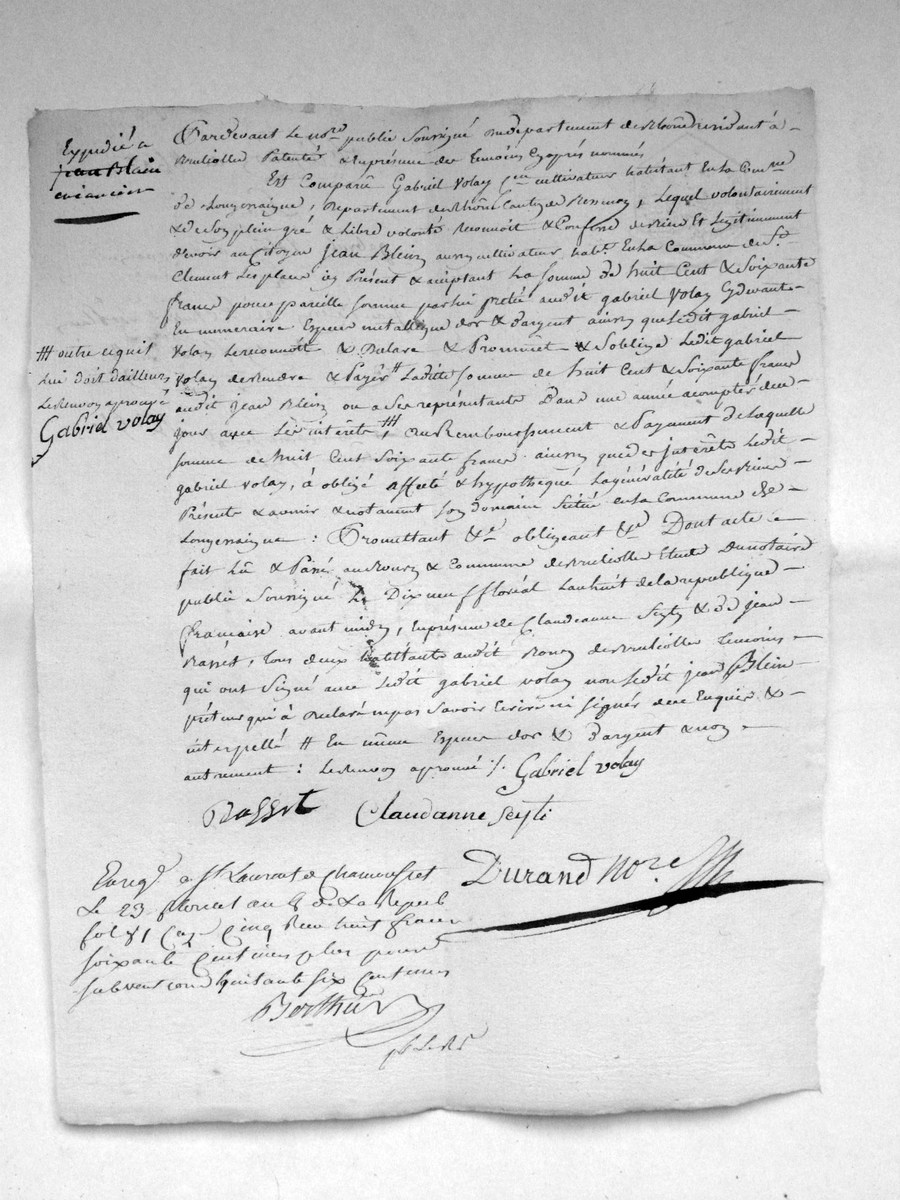 Expédié a
jean Blein
créancier
Pardevant Le no.re public Soussigné au departement du Rhône residant à
Brullioles Patenté & en présence des temoins Cy après nommés
Est Comparu Gabriel Volay cultivateur habitant En La Com.ne
de Longessaigne, departement du Rhône Canton de, Lequel volontairement
& de Son plein gré & Libre volonté reconnoit & Confesse devoir Et Legitimement
devoir au Citoyen jean Blein aussy cultivateur hab.t En La Commune de S.t
Clement Les places icy Présent & acceptant La somme de huit Cent & Soixante
francs pour pareille somme par lui pretée audit gabriel Volay Cydevant
En numeraire Espece metallique d'or & d'argent ainsy que Ledit gabriel
Volay Le reconnoit & Declare & Promet & S'oblige Ledit gabriel
Volay de rendre & Payer # Laditte somme de huit Cent & Soixante francs
audit jean Blein ou a Ses représentants Dans une année a compter de ce
jour avec Les interêts #, au Remboursement & Payement de Laquelle
somme de huit Cent Soixante francs ainsy que des interêts Ledit
gabriel Volay, à obligé affecté & hypothéqué La généralité de Ses biens
Présents & avenir & notament Son domaine Scitué en La Commune de
Longessaigne : Promettant &.a obligeant &.a Dont acte
fait Lû & Passé au Bourg & Commune de Brullioles Etude du notaire
public Soussigné Le Dix neuf floréal L'an huit de la republique
française avant midy, En présence de Claudeanne Seyti & de jean
Rasset, tous deux habitants audit Bourg de Brullioles temoins
qui ont Signé avec Ledit gabriel volay non Ledit jean Blein
prêteur qui à Declaré ne pas Savoir Ecrire ni signer de ce Enquis &
interpellé # En même Espece d'or & d'argent & non
autrement : Le renvoy aprouvé ./. Gabriel Volay
# outre ce qu'il
Lui doit d'ailleurs
Le renvoy aprouvé
Gabriel Volay
Rasset Claudanne Seyti
Durand No.re
Enreg.é a S.t Laurent de Chamousset
Le 23 floreal an 8 de La Repub
fol 81 Cinq huit francs
soixante Centimes plus pour
subvention quarante six Centimes
Berthur